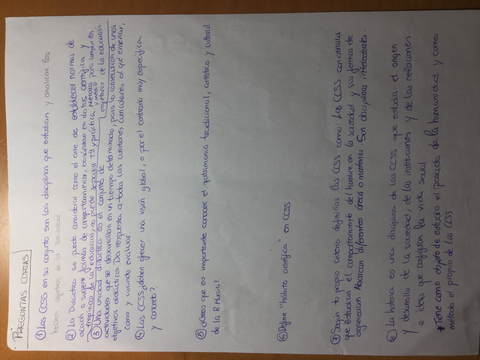 PREGUNTAS CORTAS
① Las CCSS en su conjunto son las disciplinas que estudian y analizan los
hechos objetivos de la sociedad
② La Didáctica se puede considerar como el arte de establecer normas de
acción o sugerir formas de comportamiento basándose en datos científicos y
empíricos de la educación, no puede separar TT y práctica,
③ Una unidad didáctica es el conjunto de
actividades que se desarrollan en un tiempo determinado, para la consecución de unos
objetivos didácticos. Da respuesta a todas las cuestiones curriculares al qué enseñar,
como y cuando evaluar
④ Las CCSS ¿deben ofrecer una visión global, o por el contrario muy específica
y concreta?
⑤ ¿Crees que es importante conocer el patrimonio tradicional, artístico y cultural
de la R. Murcia?
⑥ Define "hecho científico" en CCSS
⑦ Según tu propio criterio definirías las CCSS como: Las CCSS son ciencias
que estudian el comportamiento del hombre en la sociedad y sus formas de
organización. Abarcan diferentes áreas o materias. Son disciplinas intelectuales
⑧ La historia es una disciplina de las CCSS que estudia el origen
y desarrollo de la sociedad, de las instituciones y de las relaciones
e ideas que configuran la vida social
* Tiene como objeto de estudio el pasado de la humanidad y como
método el propio de las CCSS